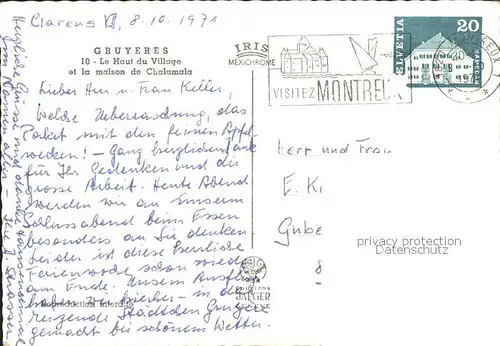 Clarens VD, 8.10.1971
GRUYERES
10 - Le Haut du Village
et la maison de Chalamala
IRIS
MEXICHROME
VISITEZ MONTREUX
HELVETIA
20
Lieber Herr u. Frau Keller,
Welche Ueberraschung, das
Paket mit den feinen Äpfeln
werden! - Ganz herzlichen Dank
für Ihr Gedenken und die
grosse Arbeit. Heute Abend
werden wir an unserem
Schlussabend beim Essen
besonders an Sie denken
Leider ist diese herrliche
Ferienwoche schon wieder
am Ende. Unsern Ausflug
haben wir hierher - in das
reizende Städtchen Gruyère
gemacht bei schönem Wetter.
Herzliche Grüsse und
im Namen aller - Ihre
Herr und Frau
E. K.
Gube
8
privacy protection
Datenschutz
Reproduction interdite
JAEGER
GENEVE